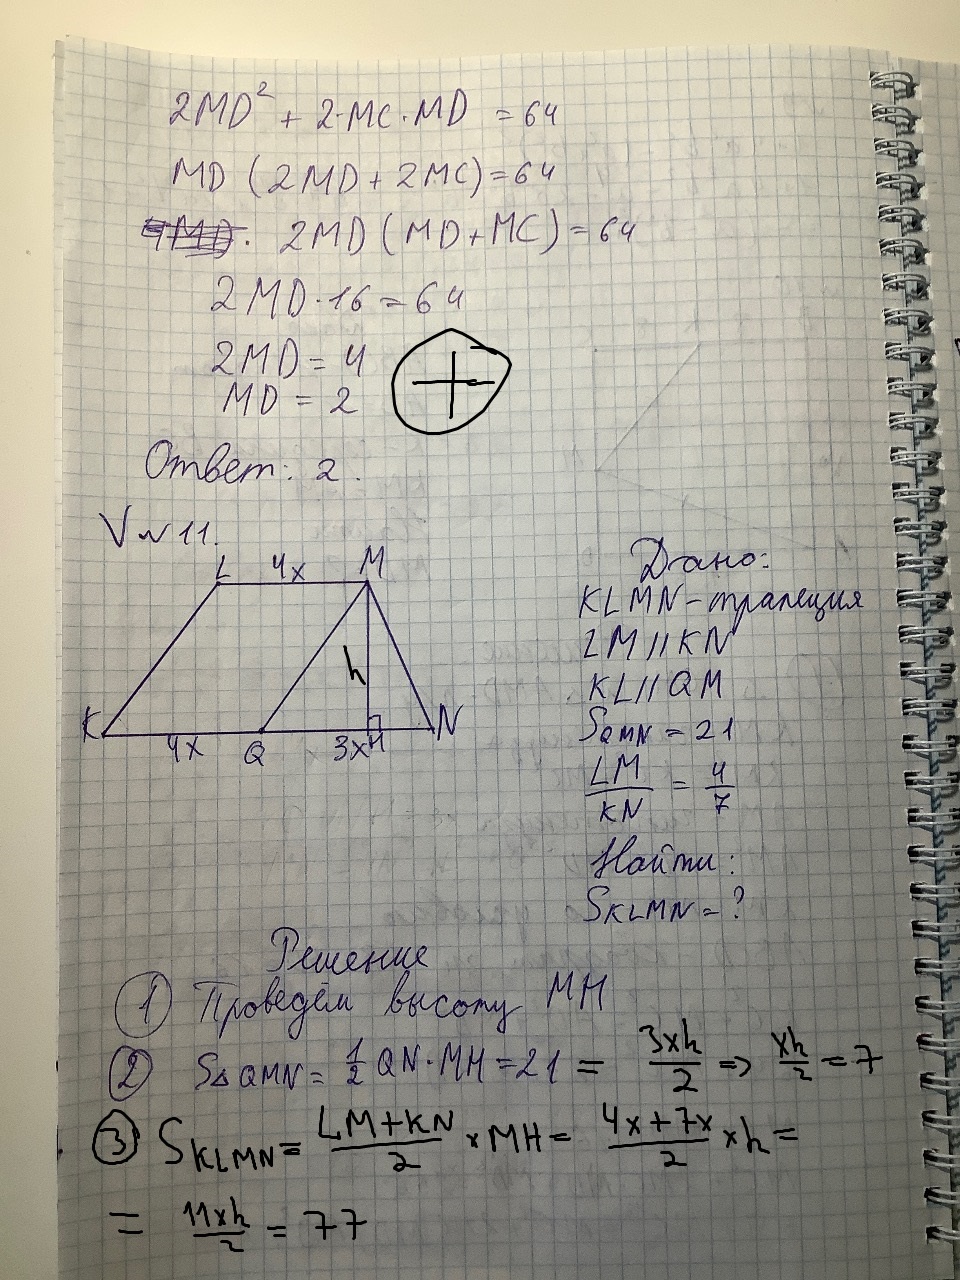 2MD² + 2·MC·MD = 64
MD (2MD + 2MC) = 64
2MD (MD + MC) = 64
2MD·16 = 64
2MD = 4
MD = 2
Ответ: 2.
V №11.
L 4x M
h
K 4x Q 3x H N
Дано:
KLMN - трапеция
LM // KN
KL // QM
S_QMN = 21
LM/KN = 4/7
Найти:
S_KLMN = ?
Решение
① Проведём высоту MH
② S△QMN = 1/2 QN·MH = 21 = 3xh/2 => xh/2 = 7
③ S_KLMN = (LM+KN)/2 × MH = (4x+7x)/2 × h =
= 11xh/2 = 77